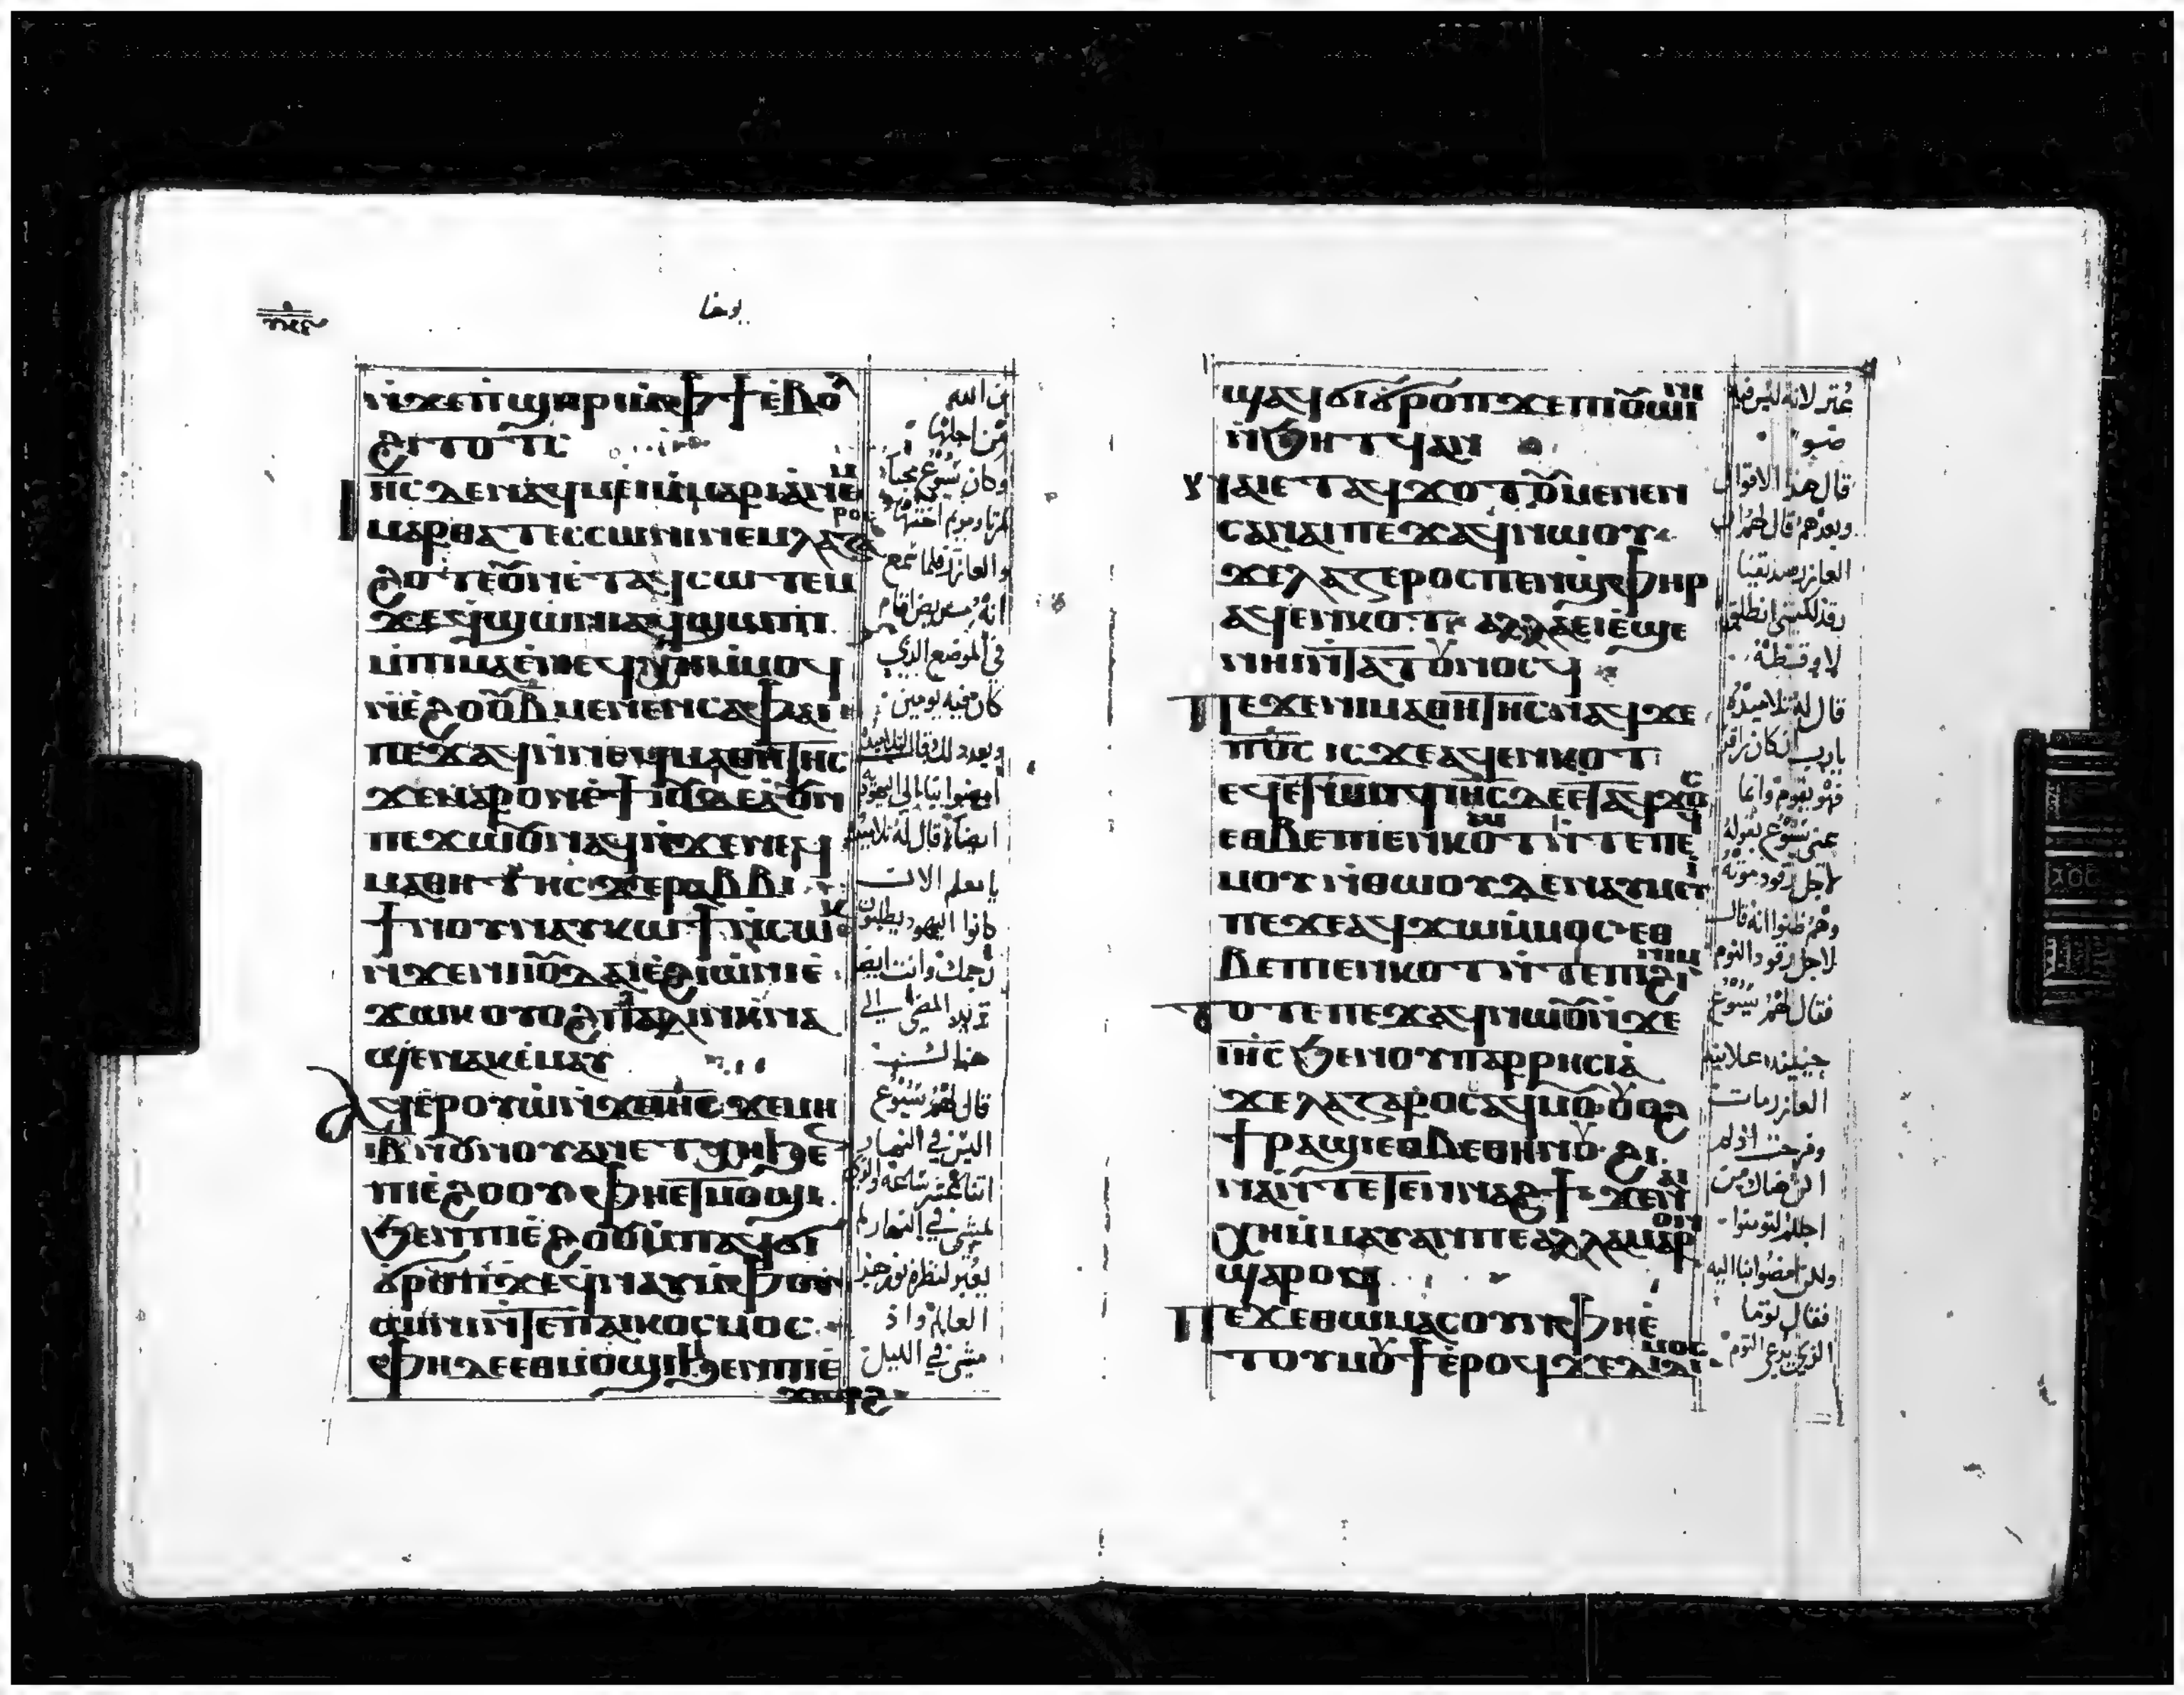 يوحنا
ⲛ̀ϫⲉⲡϣⲏⲣⲓⲙ̀ⲫϯⲉ̀ⲃⲟⲗ
ϩⲓⲧⲟⲧⲥ
ⲓⲏⲥⲇⲉⲛⲁϥⲙⲉⲓⲙ̀ⲙⲁⲣⲓⲁⲛⲉⲙ
ⲙⲁⲣⲑⲁⲧⲉⲥⲥⲱⲛⲓⲛⲉⲙⲗⲁⲍⲁⲣⲟⲥ
ϩⲟⲧⲉⲟⲩⲛⲉ̀ⲧⲁϥⲥⲱⲧⲉⲙ
ϫⲉϥϣⲱⲛⲓⲁϥϣⲱⲡⲓ
ⲙ̀ⲡⲓⲙⲁⲉ̀ⲛⲉϥⲭⲏⲙ̀ⲙⲟϥ
ⲛ̀ⲉ̀ϩⲟⲟⲩⲃ̅ⲙⲉⲛⲉⲛⲥⲁⲫⲁⲓ
ⲡⲉϫⲁϥⲛ̀ⲛⲉϥⲙⲁⲑⲏⲧⲏⲥ
ϫⲉⲙⲁⲣⲟⲛⲉ̀ϯⲓⲟⲩⲇⲉⲁⲟⲛ
ⲡⲉϫⲱⲟⲩⲛⲁϥⲛ̀ϫⲉⲛⲉϥ
ⲙⲁⲑⲏⲧⲏⲥϫⲉⲣⲁⲃⲃⲓ
ϯⲛⲟⲩⲛⲁⲩⲕⲱϯⲛ̀ⲥⲱⲕ
ⲛ̀ϫⲉⲛⲓⲓⲟⲩⲇⲁⲓⲉ̀ϩⲓⲱ̀ⲛⲓⲉ̀
ϫⲱⲕⲟⲩⲟϩⲡⲁⲗⲓⲛⲕ̀ⲛⲁ
ϣⲉⲛⲁⲕⲉ̀ⲙⲁⲩ
ⲁϥⲉ̀ⲣⲟⲩⲱⲛ̀ϫⲉⲓⲏⲥϫⲉⲙⲏ
ⲓⲃ̅ⲛ̀ⲟⲩⲛⲟⲩⲁⲛⲉⲧⲭⲏϧⲉⲛ
ⲡⲓⲉ̀ϩⲟⲟⲩⲫⲏⲉⲧⲙⲟϣⲓ
ϧⲉⲛⲡⲓⲉ̀ϩⲟⲟⲩⲙ̀ⲡⲁϥϭⲓ
ϭⲣⲟⲡϫⲉϥⲛⲁⲩⲙ̀ⲫⲟⲩ
ⲱⲓⲛⲓⲛ̀ⲧⲉⲡⲁⲓⲕⲟⲥⲙⲟⲥ
ⲫⲏⲇⲉⲉⲑⲙⲟϣⲓϧⲉⲛⲡⲓⲉ̀
ϫⲱⲣϩ
من الله
من اجلها
وكان يسوع محبا
لمرتا ومريم اختها
والعازر فلما سمع
انه مريض اقام
في الموضع الذي
كان فيه يومين
وبعد ذلك قال لتلاميذه
امضوا بنا الى اليهودية
ايضا قال له تلاميذه
يا معلم الان
كانوا اليهود يطلبون
رجمك وانت ايضا
تريد المضي الى
هناك
قال لهم يسوع
اليس في النهار
اثنا عشر ساعة والذي
يمشي في النهار لا
يعثر لنظره نور هذا
العالم واذ
مشي في الليل
ϣⲁϥϭⲓϭⲣⲟⲡϫⲉⲡⲓⲟⲩⲱⲓⲛⲓ
ⲛ̀ϧⲏⲧϥⲁⲛ
ⲛⲁⲓⲉⲧⲁϥϫⲟⲧⲟⲩⲙⲉⲛⲉⲛ
ⲥⲁⲛⲁⲓⲡⲉϫⲁϥⲛⲱⲟⲩ
ϫⲉⲗⲁⲍⲉⲣⲟⲥⲡⲉⲛϣⲫⲏⲣ
ⲁϥⲉⲛⲕⲟⲧ ⲁⲗⲗⲁⲉⲓⲉ̀ϣⲉ
ⲛⲏⲓⲛ̀ⲧⲁⲧⲟⲩⲛⲟⲥϥ
ⲡⲉϫⲉⲛⲓⲙⲁⲑⲏⲧⲏⲥⲛⲁϥϫⲉ
ⲡⲟ̅ⲥ̅ ⲓⲥ ϫⲉⲁϥⲉⲛⲕⲟⲧ
ⲉϥⲉ̀ⲧⲱⲛϥⲓⲏⲥⲇⲉⲉⲧⲁϥϫⲟⲥ
ⲉⲑⲃⲉⲡⲓⲉⲛⲕⲟⲧⲛ̀ⲧⲉⲡⲉϥ
ⲙⲟⲩⲛ̀ⲑⲱⲟⲩⲇⲉⲛⲁⲩⲙⲉⲩⲓ
ⲡⲉϫⲉⲁϥϫⲱⲙ̀ⲙⲟⲥⲉⲑ
ⲃⲉⲡⲓⲉⲛⲕⲟⲧⲛ̀ⲧⲉⲡϩⲓⲛⲓⲙ
ⲧⲟⲧⲉⲡⲉϫⲁϥⲛⲱⲟⲩⲛ̀ϫⲉ
ⲓⲏⲥϧⲉⲛⲟⲩⲡⲁⲣⲣⲏⲥⲓⲁ
ϫⲉⲗⲁⲍⲁⲣⲟⲥⲁϥⲙⲟⲩ ⲟⲩⲟϩ
ϯⲣⲁϣⲓⲉⲑⲃⲉⲑⲏⲛⲟⲩ ϩⲓ
ⲛⲁⲛ̀ⲧⲉⲧⲉⲛⲛⲁϩϯϫⲉⲛⲁⲓ
ⲭⲏⲙ̀ⲙⲁⲩⲁⲛⲡⲉⲁⲗⲗⲁⲙⲁⲣⲟⲛ
ϣⲁⲣⲟϥ
ⲡⲉϫⲉⲑⲱⲙⲁⲥⲟⲩⲛⲫⲏⲉ̀
ⲧⲟⲩⲙⲟⲩϯⲉ̀ⲣⲟϥϫⲉⲇⲓⲇⲓⲙⲟⲥ
عثر لانه ليس فيه
ضو
قال هذا الاقوال
وبعدهم قال لهم ان
العازر صديقنا
رقد لكنني انطلق
لاوقظه
قال له تلاميذه
يا رب ان كان راقد
فهو يقوم وانما
عنى يسوع بقوله
لاجل رقود موته
وهم ظنوا انه قال
لاجل رقود النوم
فقال لهم يسوع
حينيذ علانية
العازر مات
وفرحت اذ لم
اكن هناك من
اجلكم لتومنوا
ولكن امضوا بنا اليه
فقال توما
الذي يدعى التوم